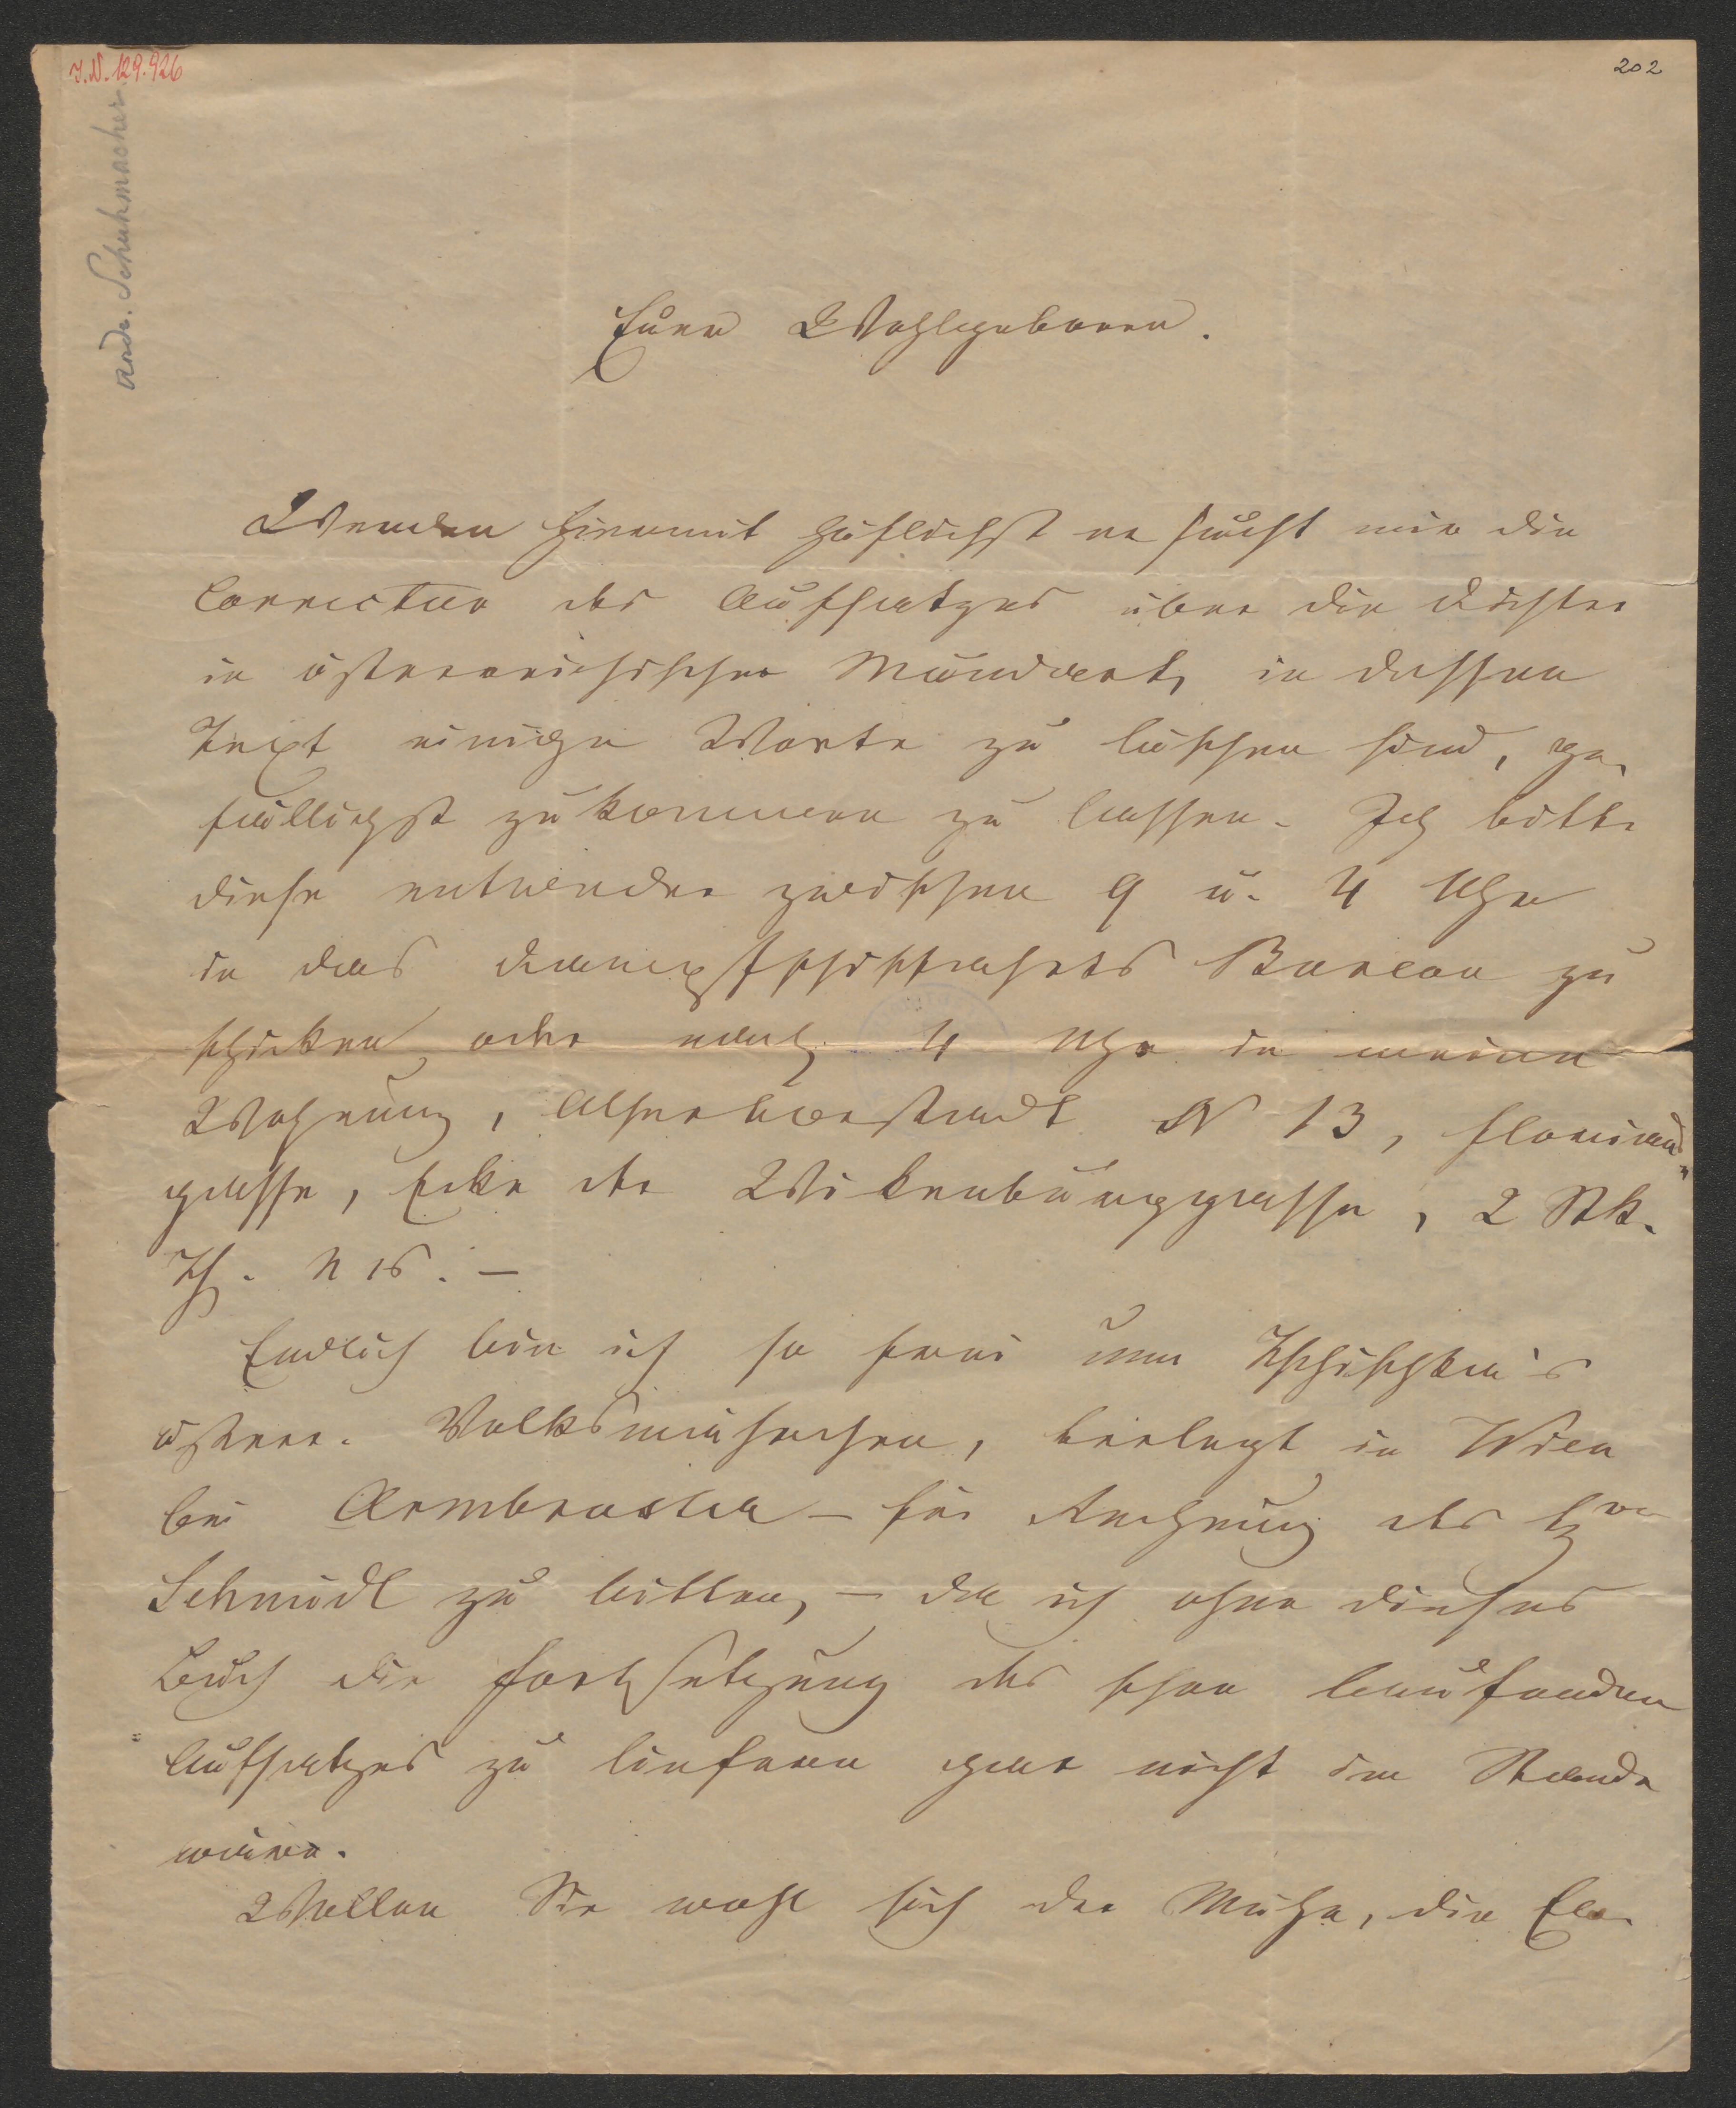 I.N. 129.926
202
Andr. Schuhmacher
Euer Wohlgeboren.
Werden hiermit höflichst ersucht mir die
Correctur des Aufsatzes über die Dichter
in österreichischer Mundart, in dessen
Text einige Worte zu löschen sind, ge-
fälligst zukommen zu lassen. Ich bitte
diese entweder zwischen 9 u. 4 Uhr
in das Dampfschiffahrts Bureau zu
schicken oder nach 4 Uhr in meine
Wohnung, Alservorstadt N 13, Floriani-
gasse, Ecke der Wikenburggasse, 2 Stk.
Th. N 16. –
Endlich bin ich so frei um Tschischka's
österr. Volksmärchen, verlegt in Wien
bei Armbruster – für Rechnung des H
Schmidl zu bitten, – da ich ohne dieses
Buch die Fortsetzung des schon laufenden
Aufsatzes zu liefern gar nicht im Stande
wäre.
Wollen Sie wohl sich der Mühe, die